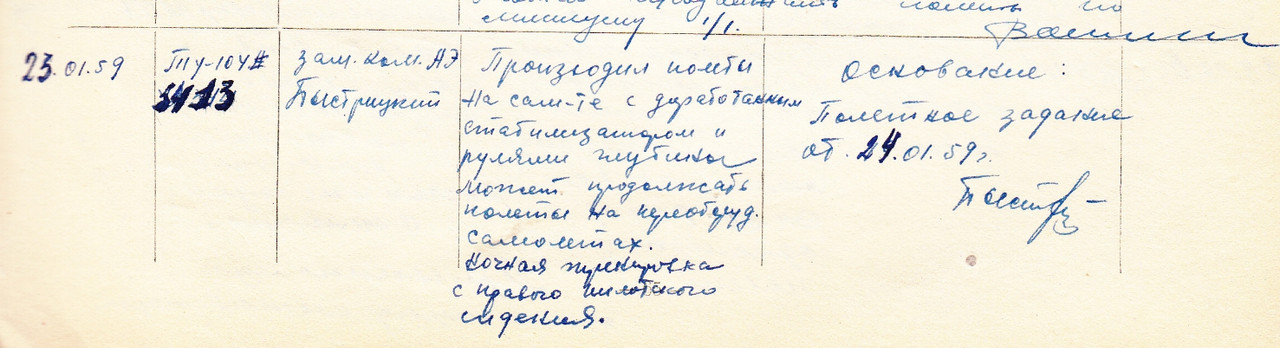 минимуму 1/1.
23.01.59
Ту-104Б
зам. ком. АЭ
Быстрицкий
Производил полеты
на сам-те с доработанным
стабилизатором и
рулями глубины
может продолжать
полеты на переоборуд.
самолетах.
Ночная тренировка
с правого пилотского
сидения.
Основание:
Полетное задание
от 24.01.59г.